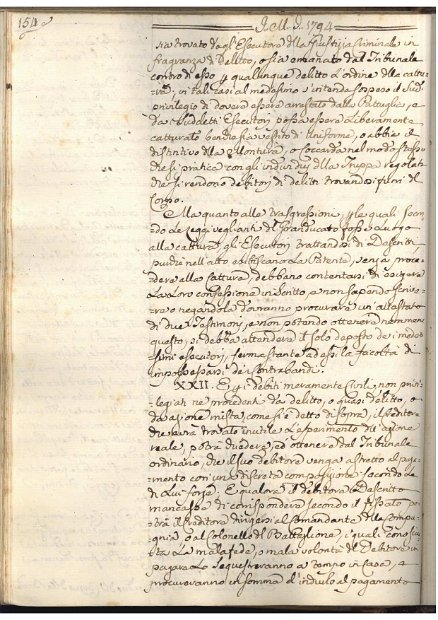 154
A. M. D. 1794
sia trovato dagl'Esecutori della Giustizia Criminale in
fragranza di Delitto, o sia emanato dal Tribunale
contro di esso p qualunque delitto l'ordine della cattu-
ra; in tal casi al medesimo s'intenda sospeso il sud.
privilegio di dovere essere arrestato dalle Pattuglie, e
da suddetti Esecutori possa essere liberamente
catturato benchè sia vestito di Uniforme, o abbia il
distintivo della Montura, o coccarda nel modo stesso
che si pratica con gli individui della Truppa regolata
che si rendono debitori di delitti trovandosi fuori del
Corpo.
Ma quanto alle trasgressioni, p le quali secon-
do le Leggi veglianti del Granducato fosse luogo
alla cattura, gli Esecutori trattandosi di Descritti
purchè nell'atto esibiscano la Patente, senza proce-
dere alla cattura, debbano contentarsi di esigere
la loro confessione in scritto, e non sapendo scrive-
re o negandola dovranno procurare un'attestato
di due Testimoni, e non potendo ottenere nemmeno
questo, si debba attendere il solo deposto dei medesi-
simi esecutori, ferma stante ad essi la facoltà di
impossessarsi dei contrabbandi.
XXII. E p i debiti meramente Civili non privi-
legiati ne procedenti da delitto, o quasi delitto, o
da azione mista come si è detto di sopra, il Creditore
che avrà trovato inutile l'esperimento dell'azione
reale, potrà chiedere, ed ottenere dal Tribunale
ordinario, che il suo debitore venga astretto al paga-
mento con una discreta composizione secondo le
di Lui forze. E qualora il debitore Descritto
mancasse di corrispondere secondo il fissato po-
trà il Creditore dirigersi al Comandante della Compa-
gnia, o al Colonello del Battaglione, i quali conosciu-
ta la mala fede, o mala volontà del Debitore in
pagare lo sequestreranno a tempo in Casa, e
procureranno in somma d'indurlo al pagamento